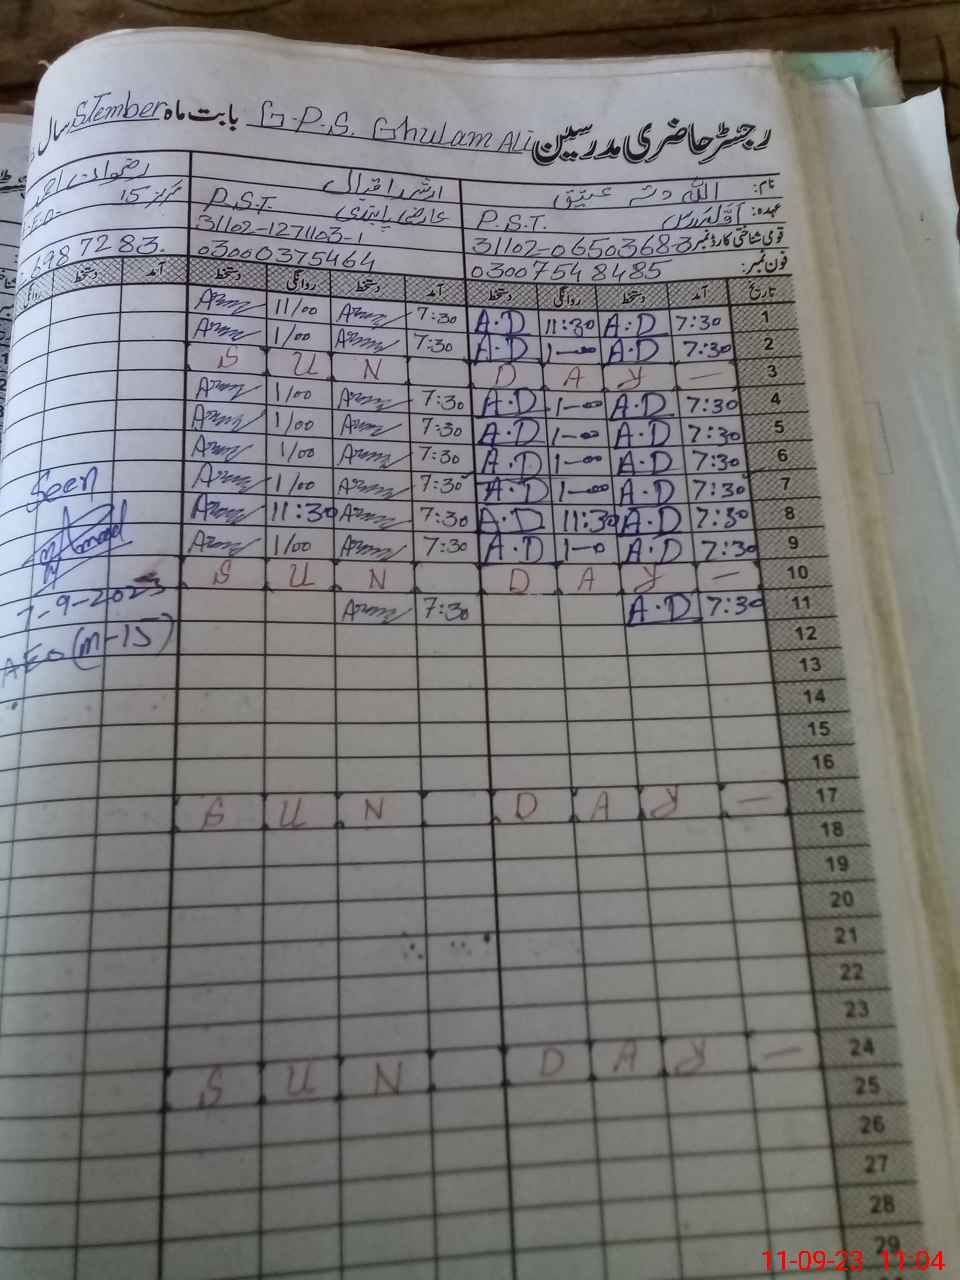 رجسٹر حاضری مدرسین G.P.S. Ghulam Ali بابت ماہ STember سال
نام: اللہ دتہ عتیق ارشد اقبال رضوان احمد
عہدہ: P.S.T. P.S.T.
قومی شناختی کارڈ نمبر 31102-0650368-3 31102-1271103-1
فون نمبر: 03007548485 03000375464 6987283
تاریخ آمد دستخط روانگی دستخط آمد دستخط روانگی دستخط آمد دستخط روانگی
1 7:30 A.D 11:30 A.D 7:30 11/00
2 7:30 A.D 1-00 A.D 7:30 1/00
3 S U N D A Y —
4 7:30 A.D 1-00 A.D 7:30 1/00
5 7:30 A.D 1-00 A.D 7:30 1/00
6 7:30 A.D 1-00 A.D 7:30 1/00
7 7:30 A.D 1-00 A.D 7:30 1/00
8 7:30 A.D 11:30 A.D 7:30 11:30
9 7:30 A.D 1-0 A.D 7:30 1/00
10 S U N D A Y —
11 7:30 A.D 7:30
12
13
14
15
16
17 S U N D A Y —
18
19
20
21
22
23
24 S U N D A Y —
25
26
27
28
29
Seen
7-9-2023
AEO (M-15)
11-09-23 11:04